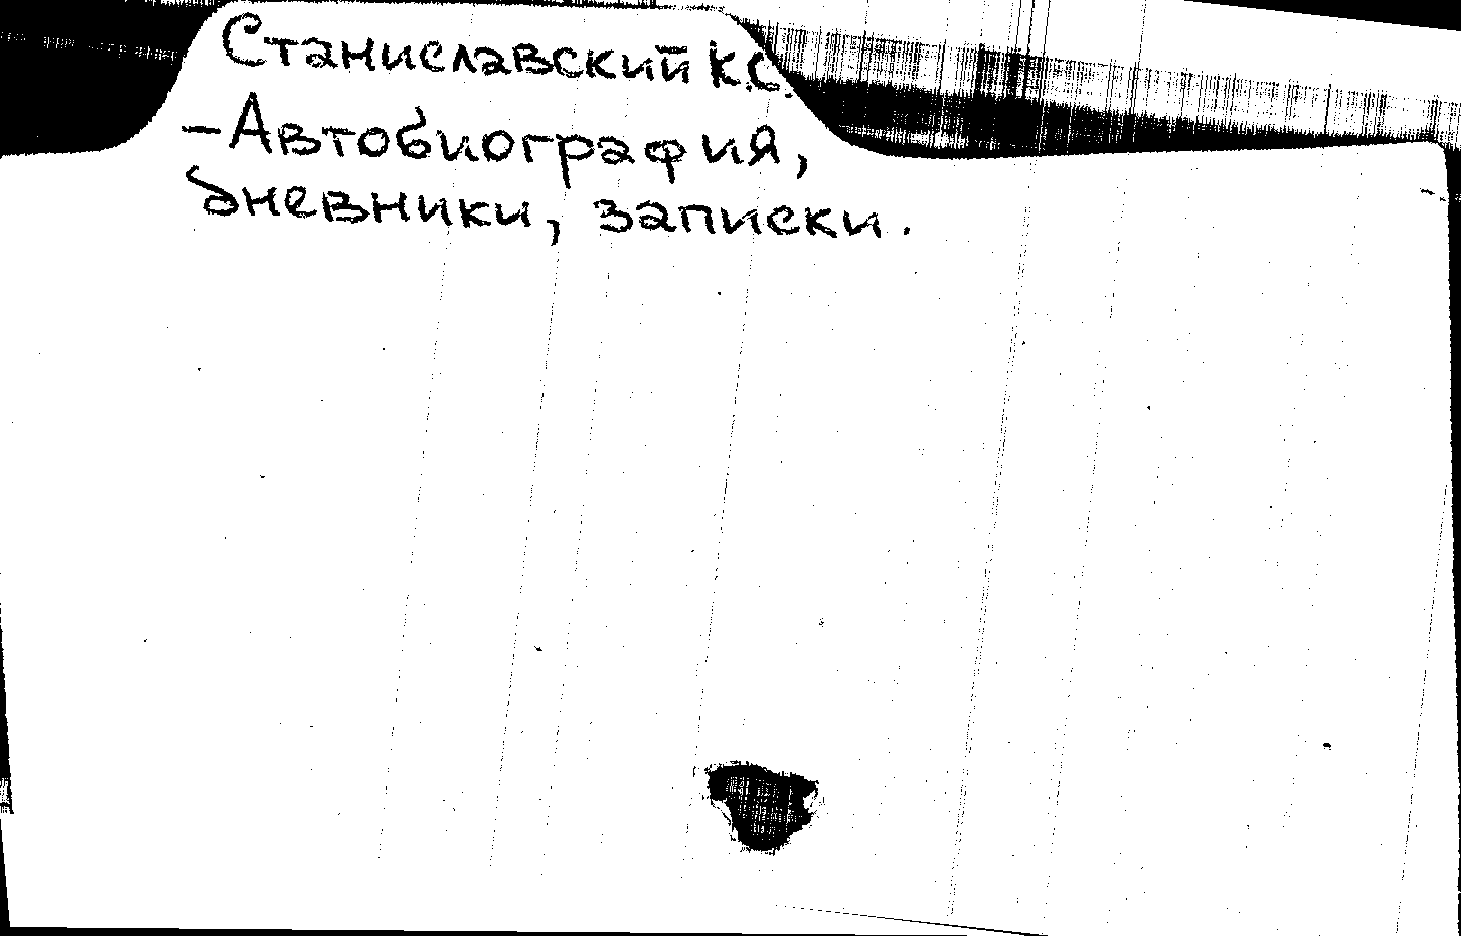 Станиславский К.С.
- Автобиография,
дневники, записки.